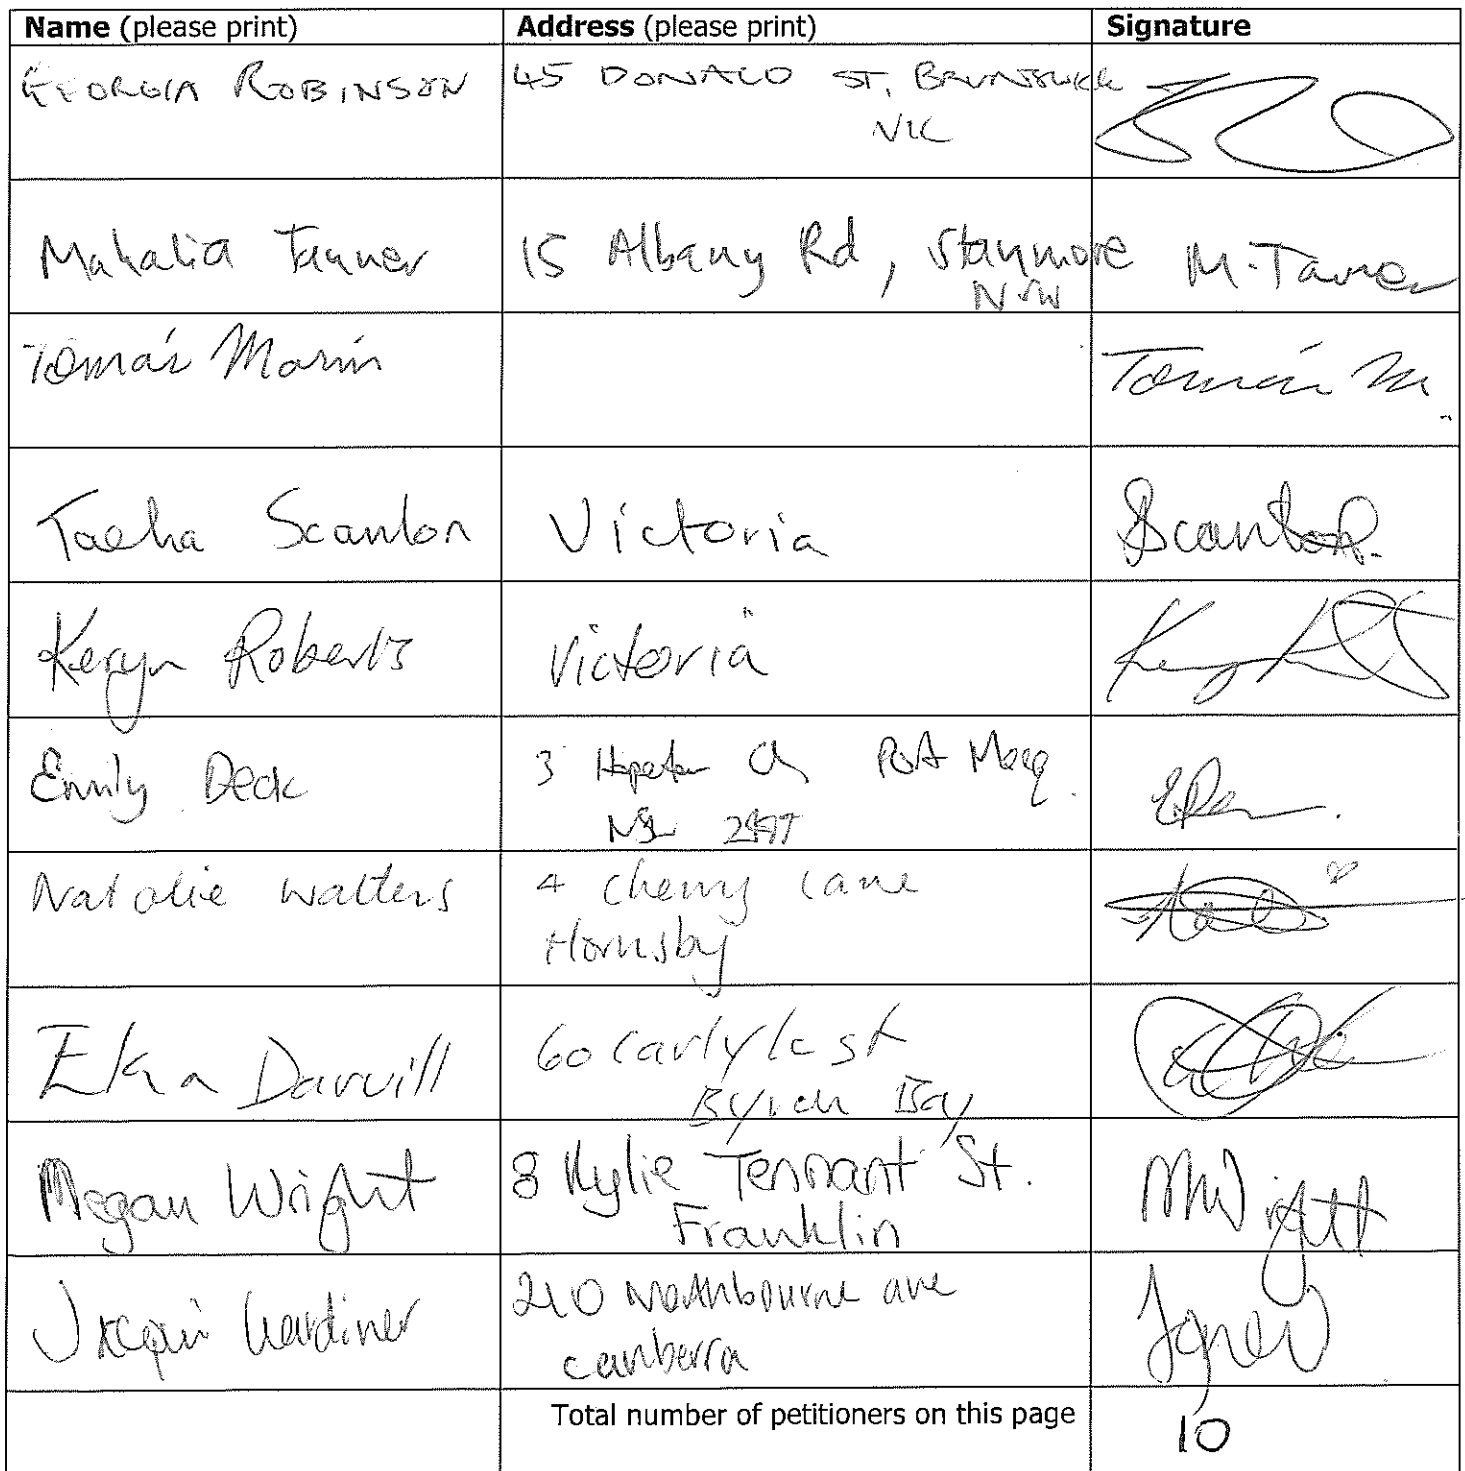 Name (please print) Address (please print) Signature
GEORGIA ROBINSON 45 DONALD ST, BRUNSWICK
VIC
Mahalia Tanner 15 Albany Rd, Stanmore M. Tanner
NSW
Tomás Marín Tomás M.
Tacha Scanlon Victoria Scanlon.
Keryn Roberts Victoria
Emily Deck 3 Port Macq.
NSW
Natalie Walters 4 cherry lane
Hornsby
Eka Darvill 60 carlyle st
Byron Bay
Megan Wright 8 Kylie Tennant St. MWright
Franklin
Jacqui Gardiner 210 Northbourne ave
canberra
Total number of petitioners on this page 10